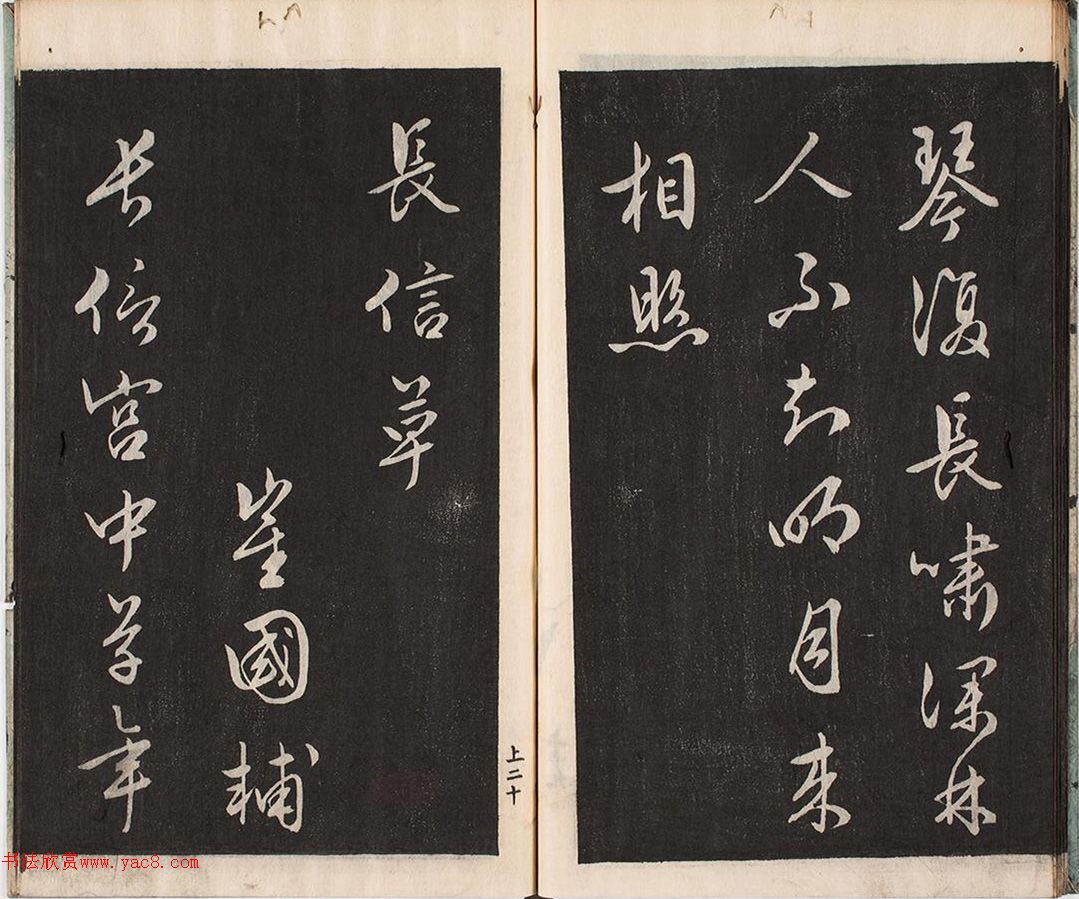 琴復長嘯深林
人不知明月来
相照
長信草
崔國輔
長信宮中草年
上二十
书法欣赏www.yac8.com